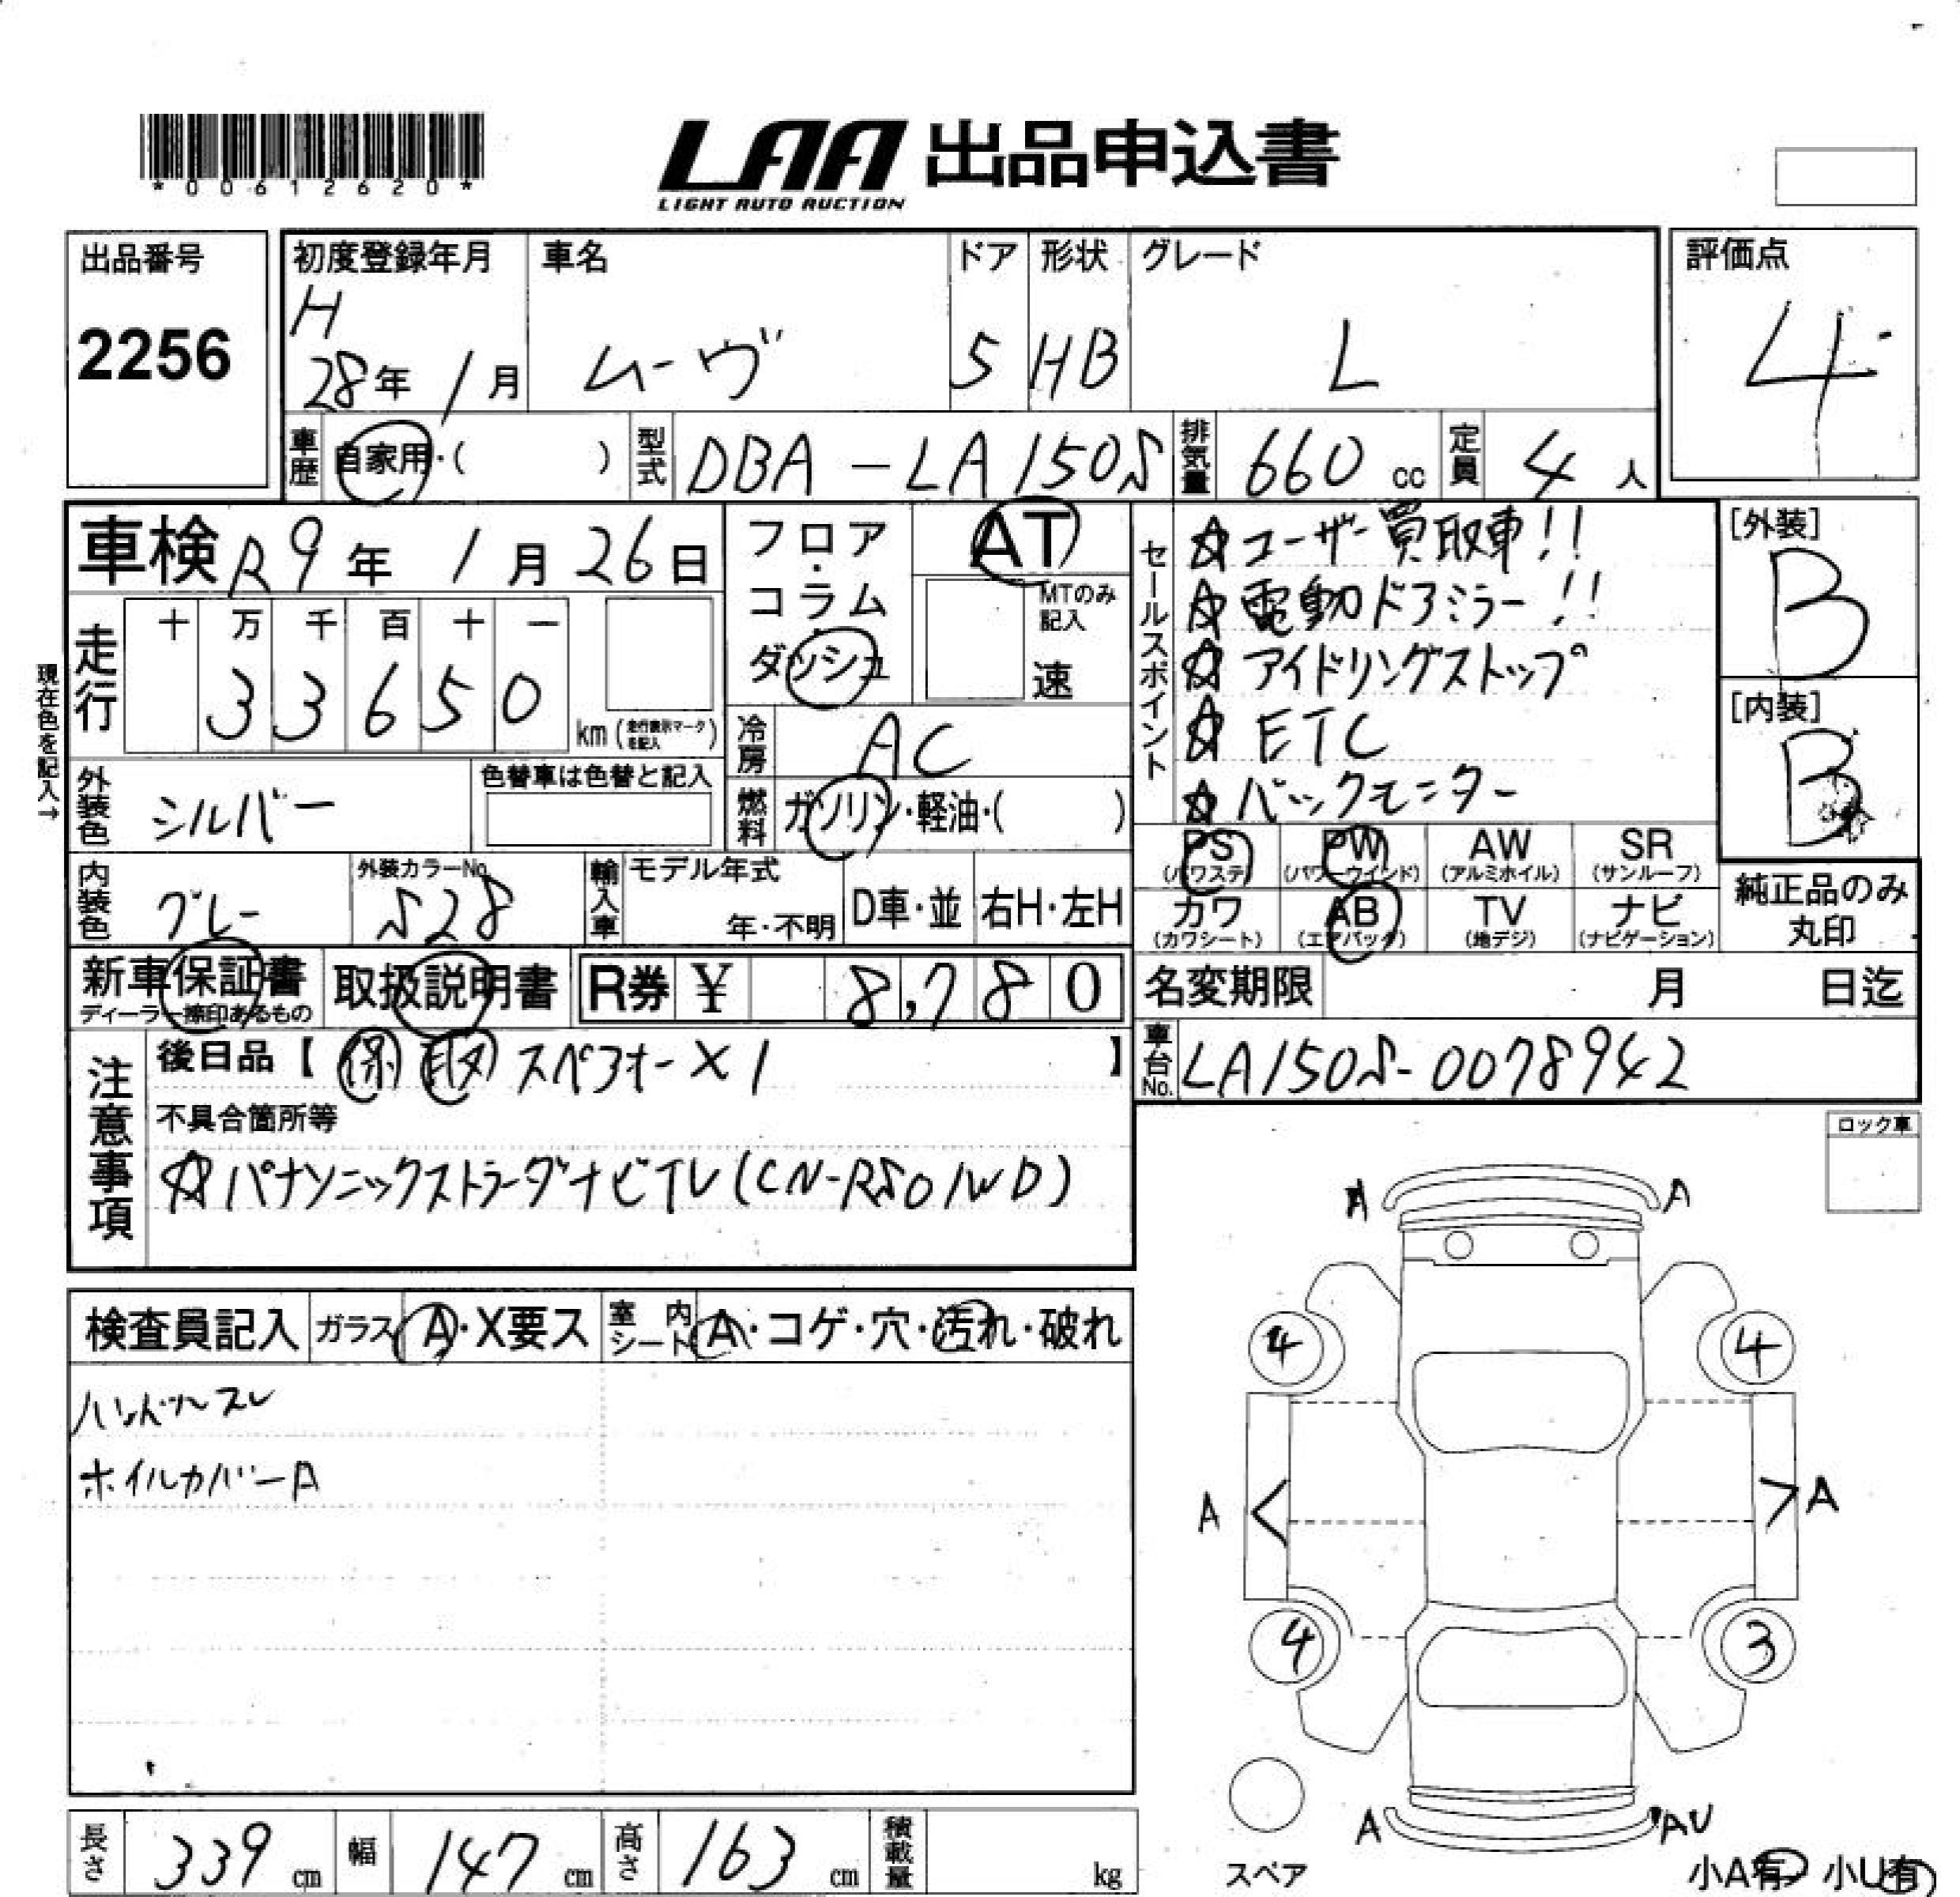 *00612620*
LAA 出品申込書
LIGHT AUTO AUCTION
出品番号
2256
初度登録年月
H
28年 1月
車名
ムーヴ
ドア
5
形状
HB
グレード
L
評価点
4
車歴 自家用・( )
型式 DBA-LA150S
排気量 660 cc
定員 4 人
車検 R9年 1月 26日
フロア・コラム・ダッシュ
AT
MTのみ記入
速
セールスポイント
☆ユーザー買取車!!
☆電動ドアミラー!!
☆アイドリングストップ
☆ETC
☆バックモニター
[外装]
B
[内装]
B
現在色を記入→
走行
十 万 千 百 十 一
3 3 6 5 0
km (走行表示マークを記入)
冷房 AC
外装色 シルバー
色替車は色替と記入
燃料 ガソリン・軽油・( )
PS (パワステ)
PW (パワーウインド)
AW (アルミホイル)
SR (サンルーフ)
内装色 グレー
外装カラーNo. S28
輸入車
モデル年式
年・不明
D車・並
右H・左H
カワ (カワシート)
AB (エアバック)
TV (地デジ)
ナビ (ナビゲーション)
純正品のみ丸印
新車保証書
ディーラー捺印あるもの
取扱説明書
R券 ¥ 8,780
名変期限 月 日迄
注意事項
後日品【 保 取 スペアキー×1 】
車台No. LA150S-0078942
不具合箇所等
☆パナソニックストラーダナビTV(CN-R301WD)
ロック車
検査員記入
ガラス A・X要ス
室内シート A・コゲ・穴・汚れ・破れ
ハンドルスレ
ホイルカバーA
A A
4 4
A A
4 3
A AU
スペア
小A有 小U有
長さ 339 cm
幅 147 cm
高さ 163 cm
積載量 kg